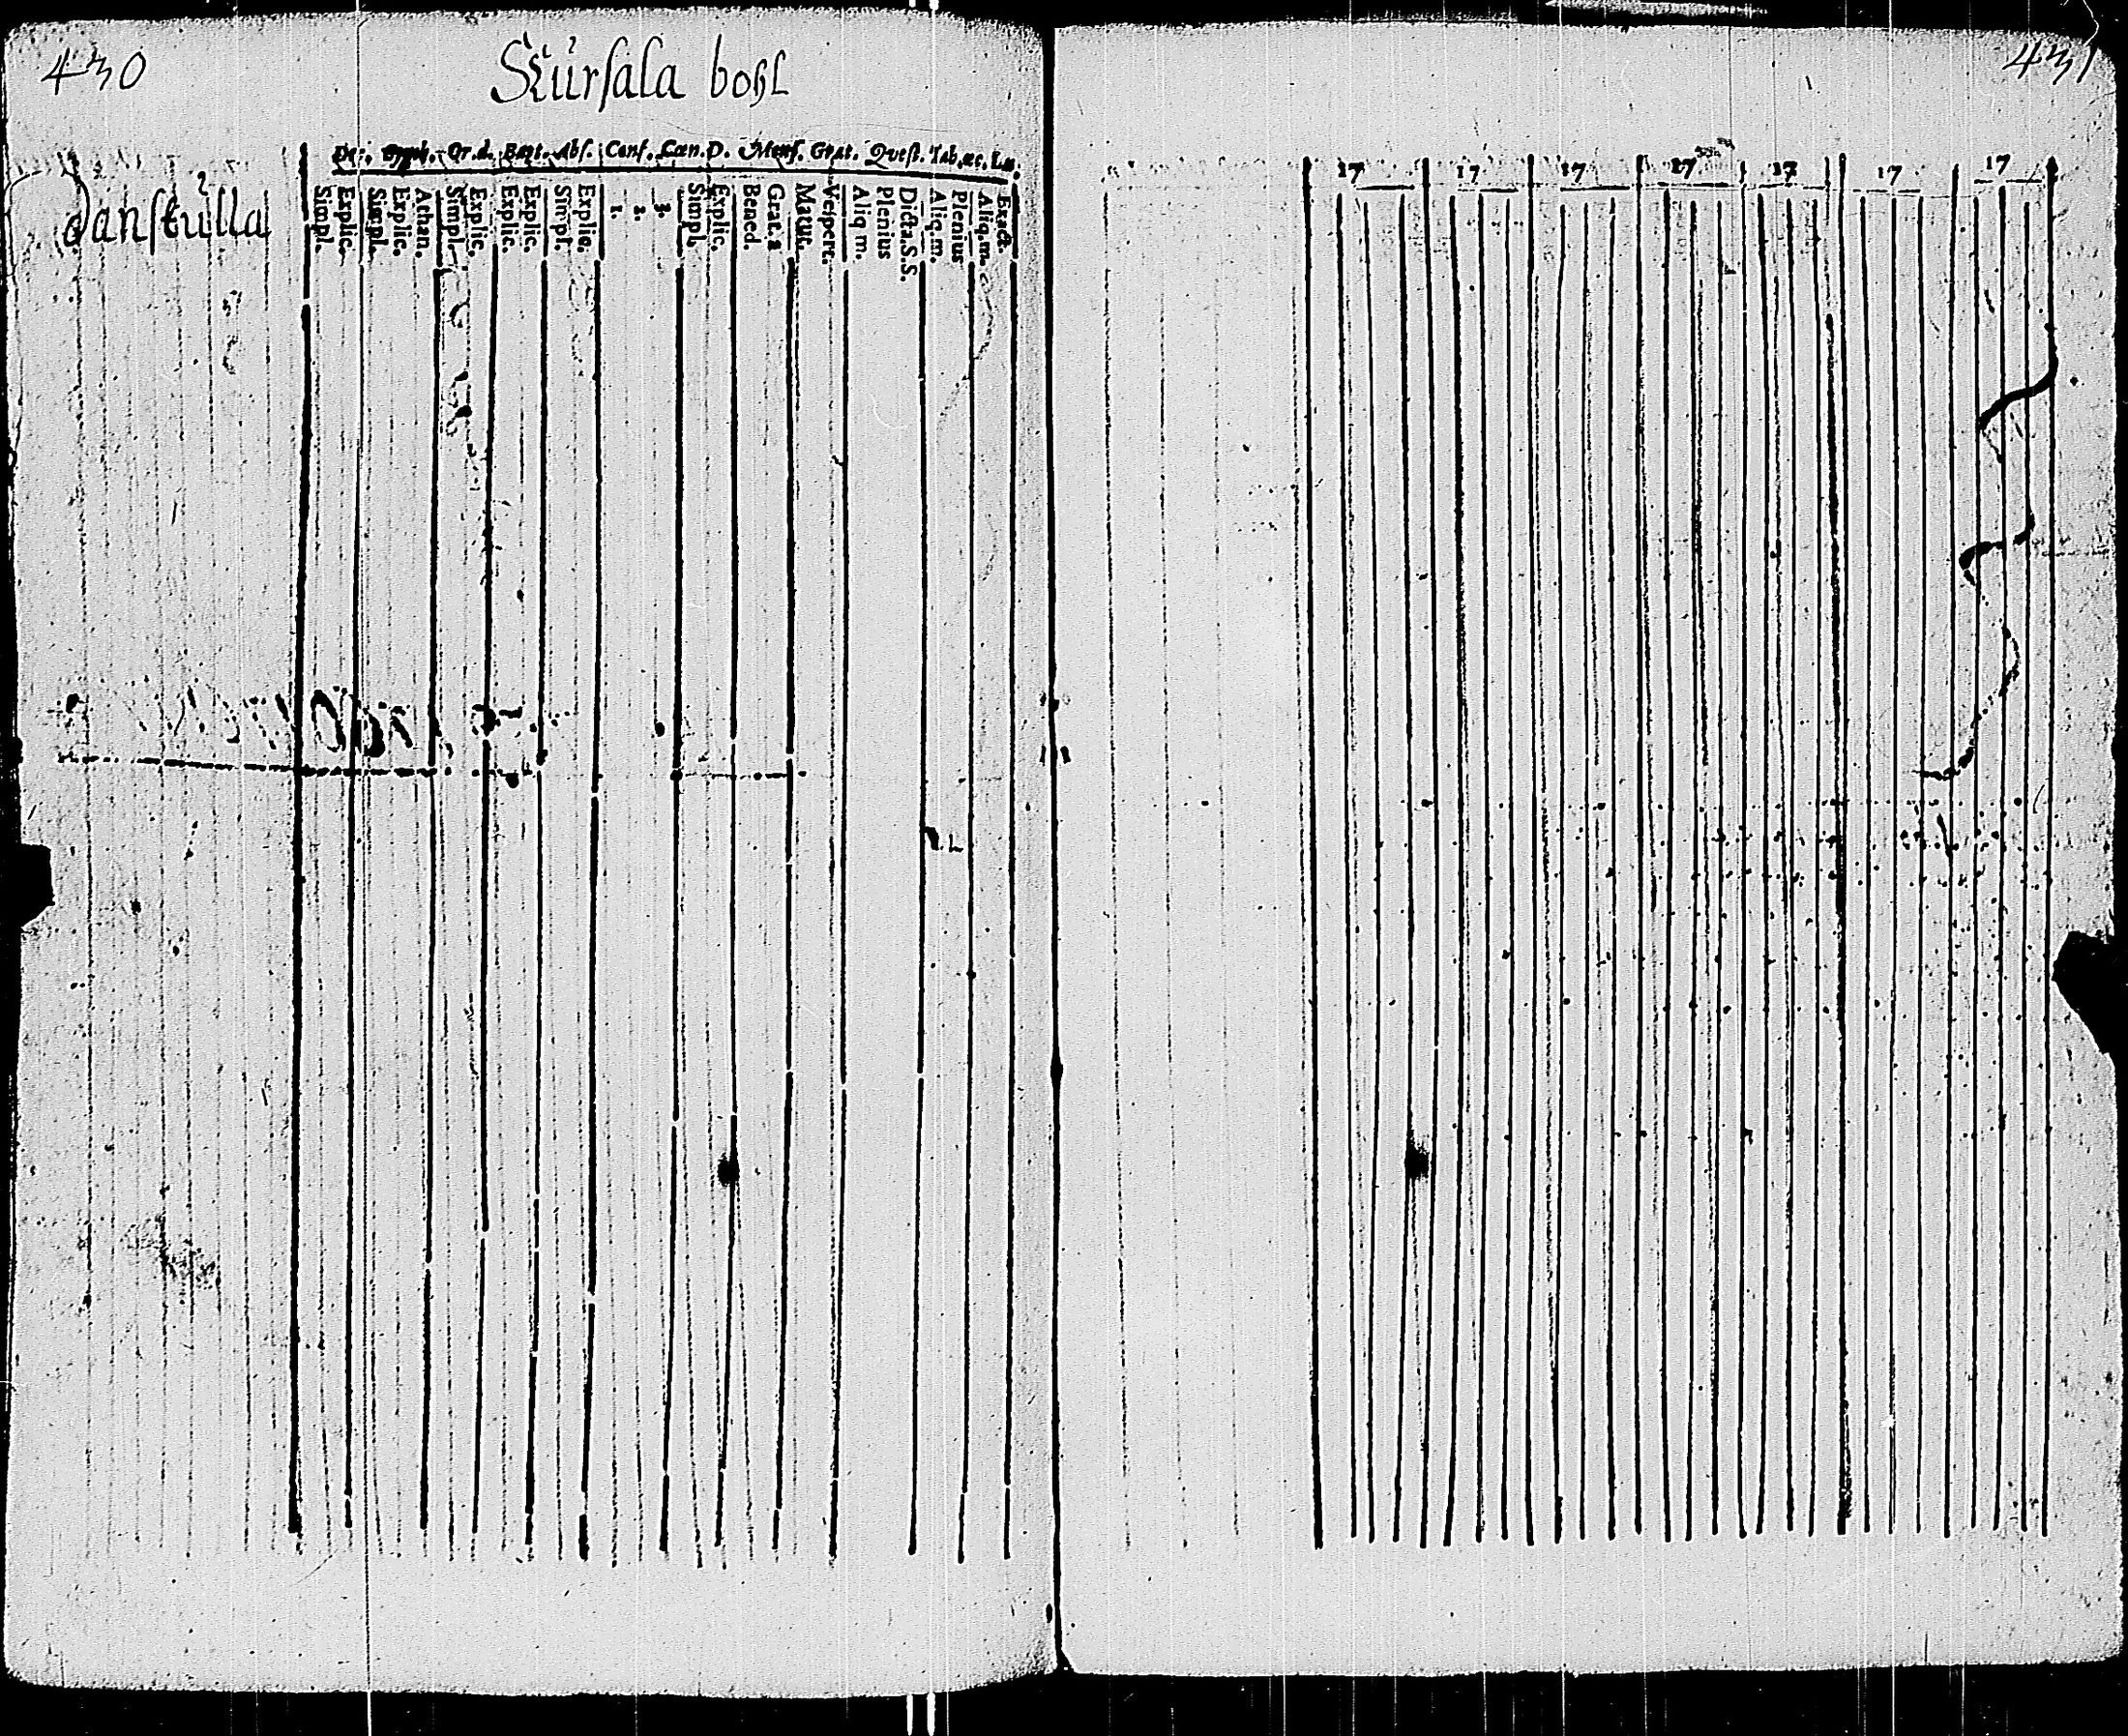 430
Skursala bohl
431
Dec. Symb. Or.d. Bapt. Abs. Conf. Cœn.D. Mens. Grat. Quest. Tab.œc. Lu.
Danskulla
Simpl.
Explic.
Simpl.
Explic.
Athan.
Simpl.
Explic.
Explic.
Explic.
Simpl.
Explic.
1.
2.
3.
Simpl.
Explic.
Bened.
Grat.a
Matut.
Vespert.
Aliq m.
Plenius
Dicta.S.S.
Aliq.m.
Plenius
Aliq.m.
Exact.
17 17 17 17 17 17 17